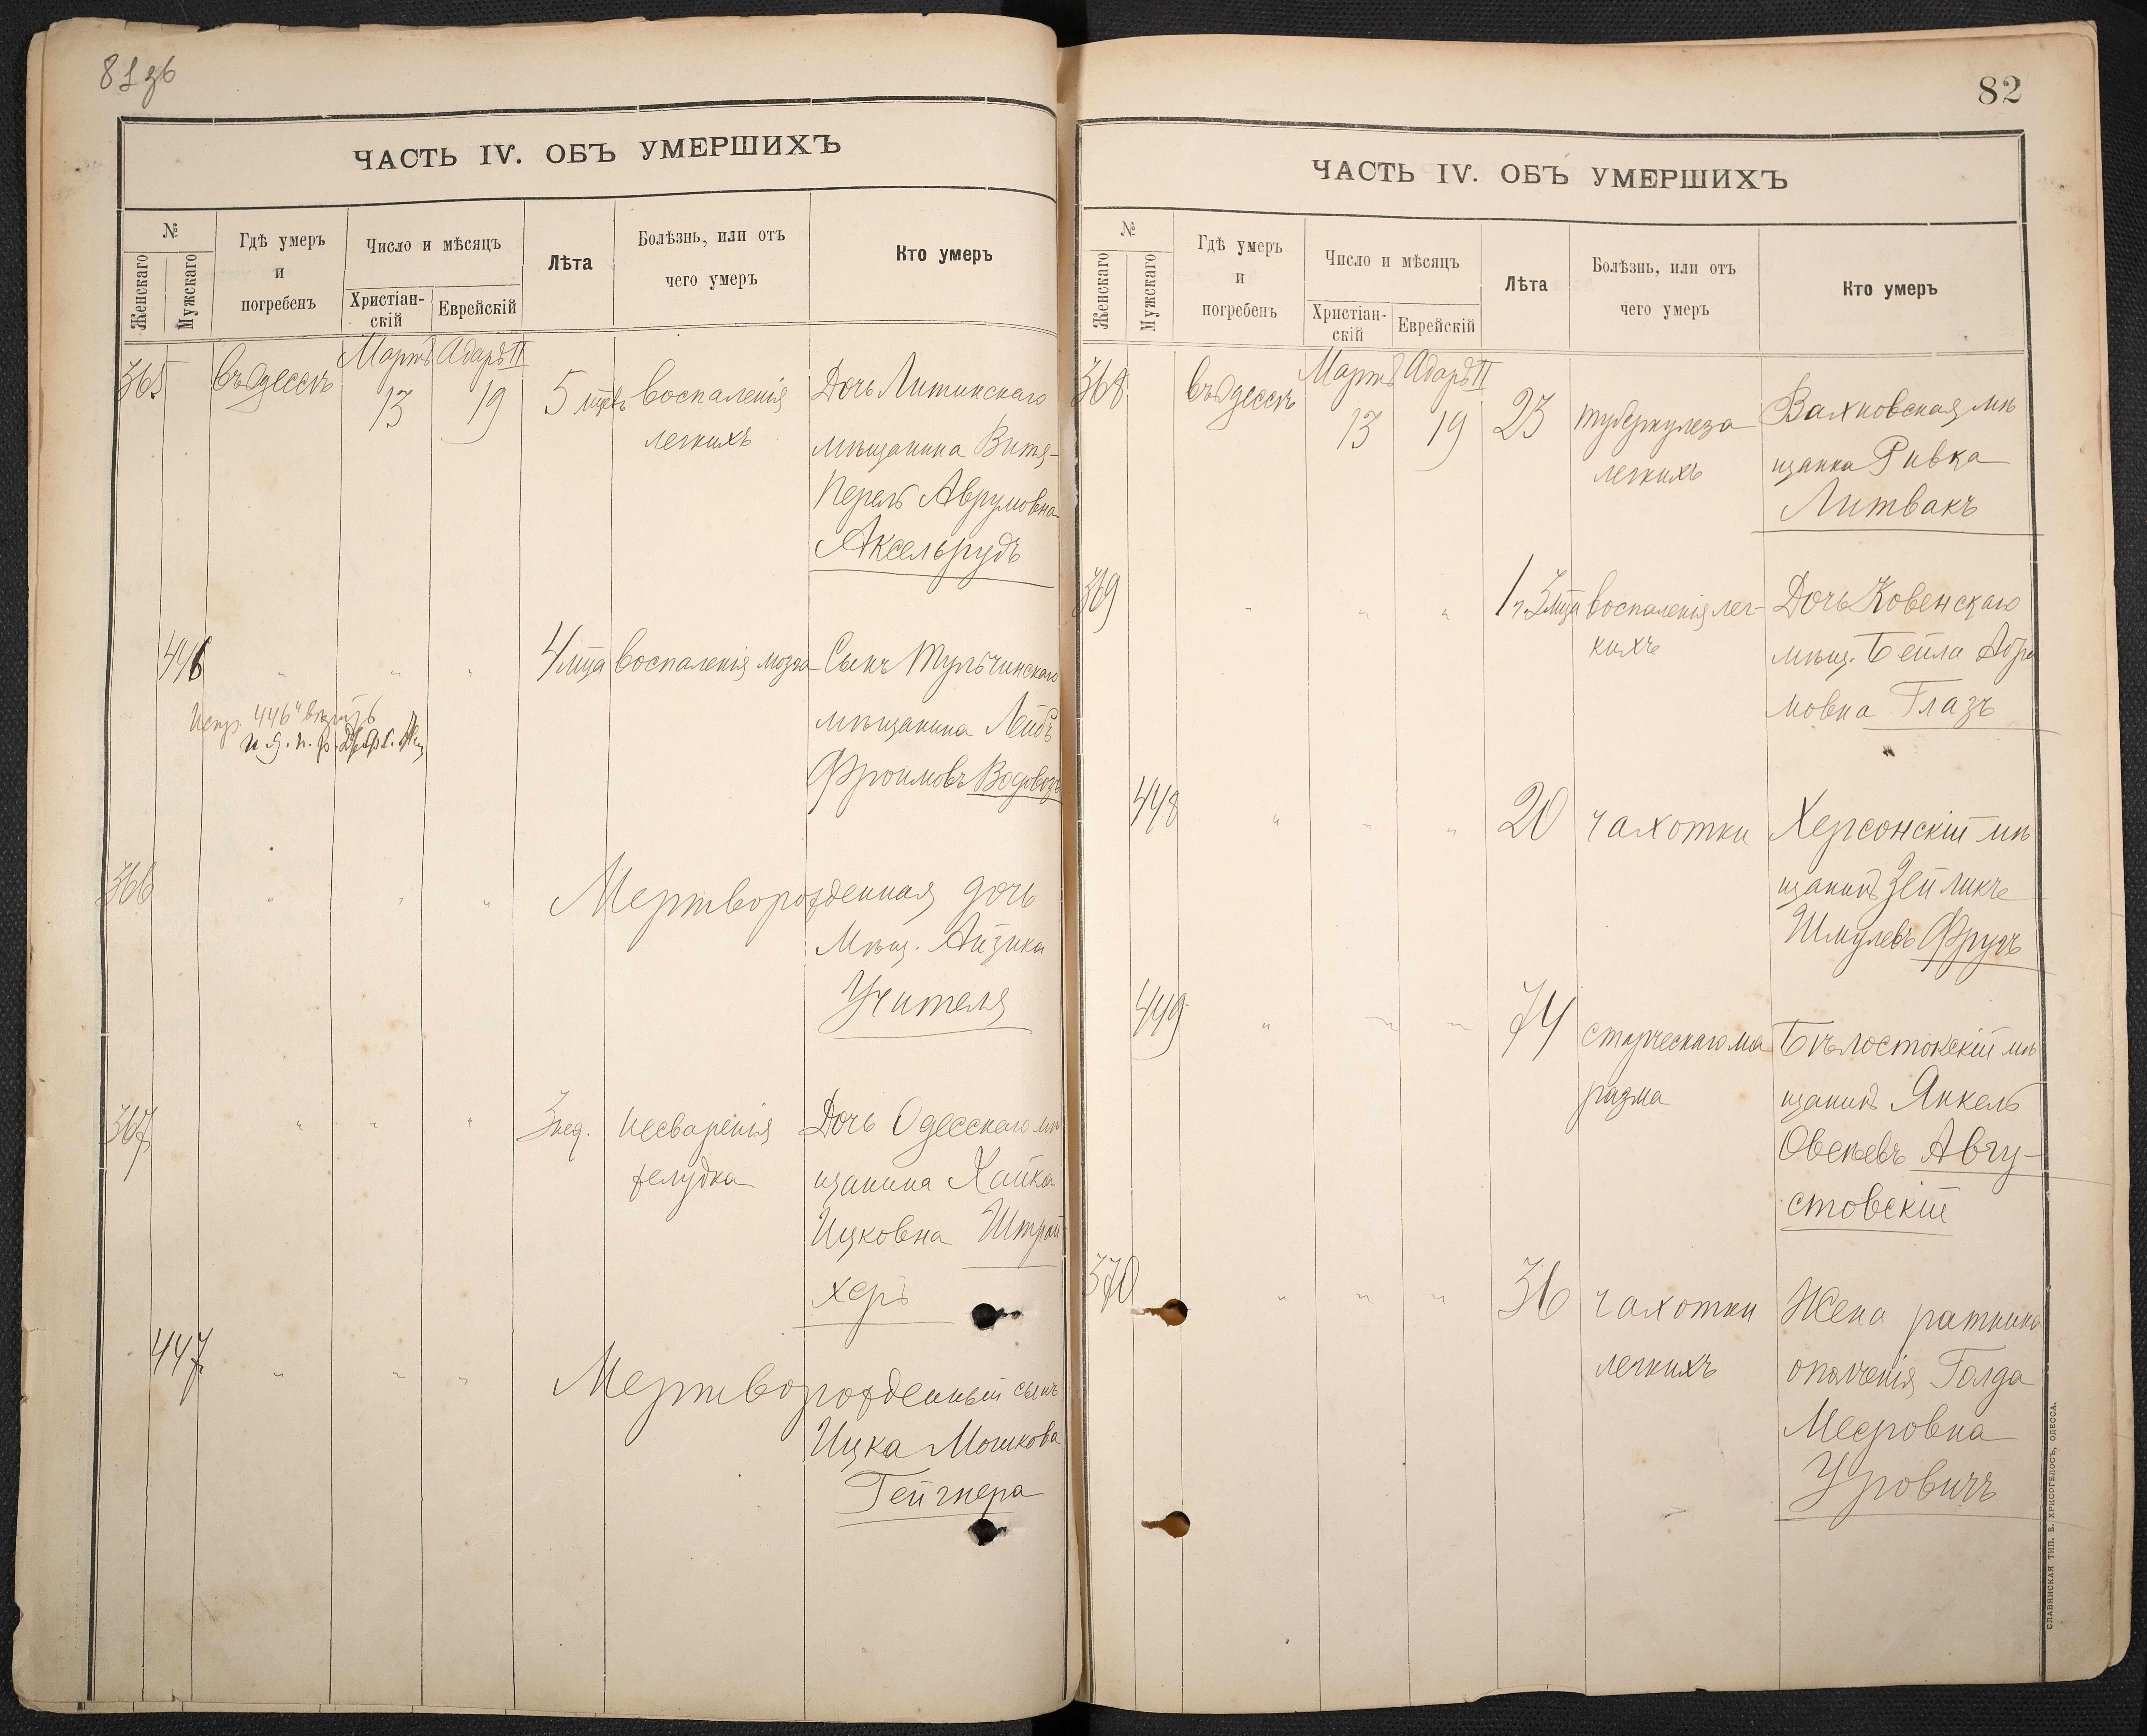 81 зв
ЧАСТЬ IV. ОБЪ УМЕРШИХЪ
№
Женскаго
Мужскаго
Гдѣ умеръ
и
погребенъ
Число и мѣсяцъ
Христіан-
скій
Еврейскій
Лѣта
Болѣзнь, или отъ
чего умеръ
Кто умеръ
Мартъ Адаръ II
365 въ Одессѣ 13 19 5 мцевъ воспаленія Дочь Литинскаго
легкихъ мѣщанина Витя-
Перель Аврумовна
Аксельрудъ
446 " " " 4 мца воспаленія мозга Сынъ Тульчинскаго
мѣщанина Лейбъ
Фроимовъ Водовозъ
446" вѣрить
366 " " " Мертворожденная дочь
Мѣщ. Айзика
Учителя
367 " " " 3 нед. несваренія Дочь Одесскаго мѣ
желудка щанина Хайка
Ицковна Штрай-
херъ
447 " " " Мертворожденный сынъ
Ицка Мошкова
Гейгнера
82
ЧАСТЬ IV. ОБЪ УМЕРШИХЪ
№
Женскаго
Мужскаго
Гдѣ умеръ
и
погребенъ
Число и мѣсяцъ
Христіан-
скій
Еврейскій
Лѣта
Болѣзнь, или отъ
чего умеръ
Кто умеръ
Мартъ Адаръ II
368 въ Одессѣ 13 19 23 туберкулеза Вахновская мѣ
легкихъ щанка Ривка
Литвакъ
369 " " " 1 г. 3 мца воспаленія лег- Дочь Ковенскаго
кихъ мѣщ. Бейла Абра
мовна Глазъ
448 " " " 20 чахотки Херсонскій мѣ
щанинъ Зейликъ
Шмулевъ Фрудъ
449 " " " 74 старческаго ма Бѣлостокскій мѣ
разма щанинъ Янкель
Овсѣевъ Авгу-
стовскій
370 " " " 36 чахотки Жена ратника
легкихъ ополченія Голда
Мееровна
Уровичъ
СЛАВЯНСКАЯ ТИП. Е. ХРИСОГЕЛОСЪ, ОДЕССА.